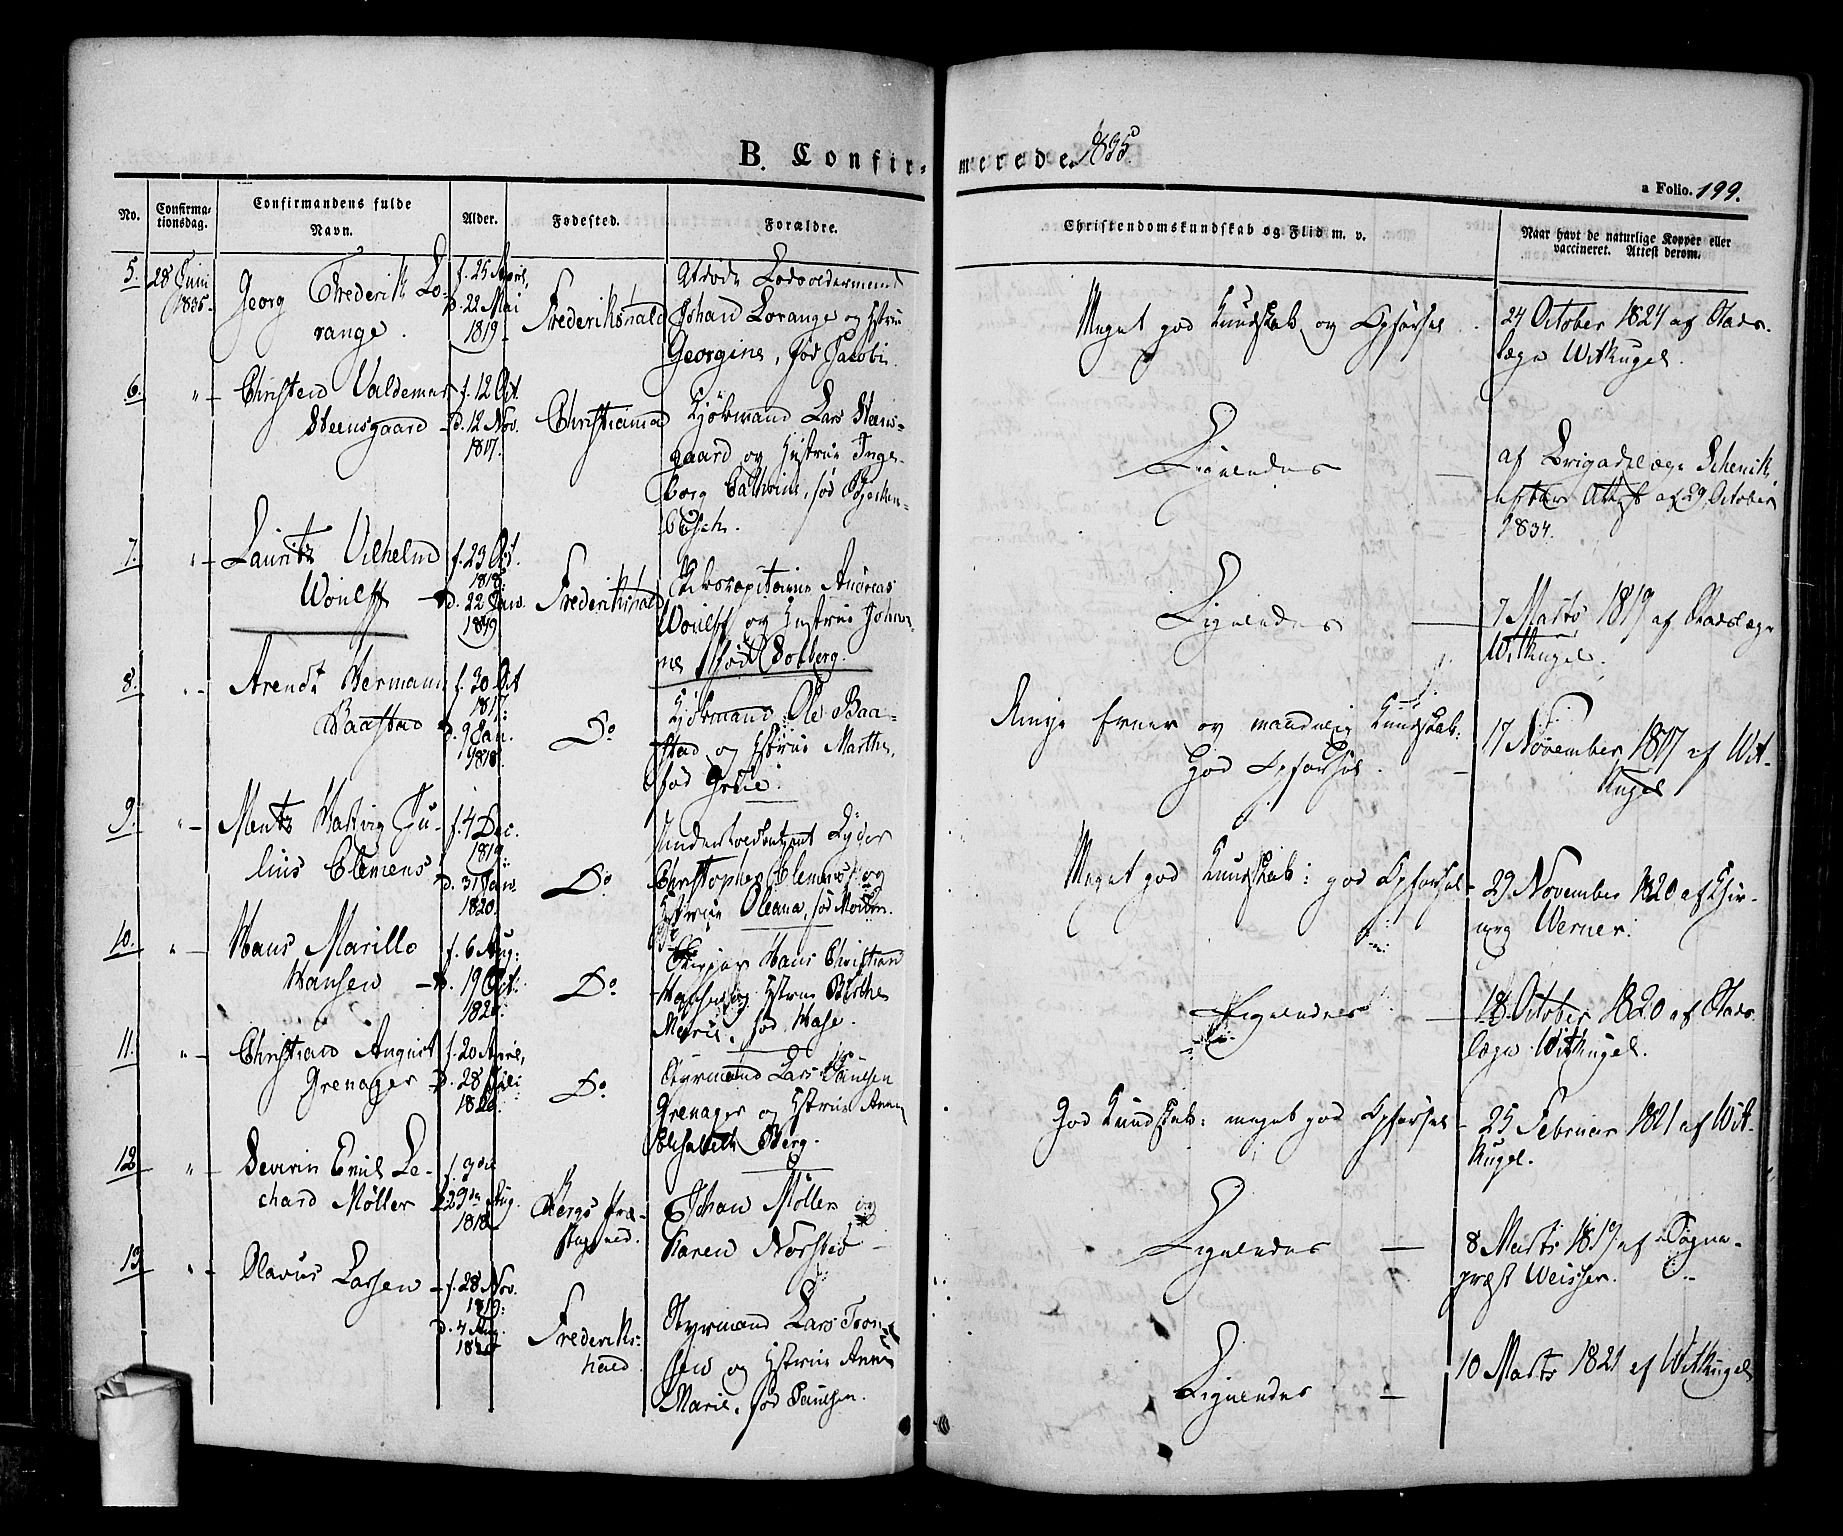 B. Confirmerede 1835.
a Folio. 199.
No.
Confirma-
tionsdag.
Confirmandens fulde
Navn.
Alder.
Fødested.
Forældre.
Christendomskundskab og Flid m. v.
Naar havt de naturlige Kopper eller
vaccineret. Attest derom.
5.
28 Juni
1835.
Georg Frederik Lo-
range.
f. 25 April,
d. 22 Mai
1819
Frederikshald
Johan Lorange og Hstrue
Georgine, fød Jacobi.
Meget god Kundskab og Opførsel.
24 October 1824 af Stads-
læge Witkugel.
6.
"
Christen Valdemar
Steensgaard
f. 12 Oct.
d. 12 Nov.
1817.
Christiania
Kjøbmand Lars Steens-
gaard og Hustrue Inge-
borg Cathrine, fød
busch.
Ligeledes
af Brigadelæge Schenck
efter Attest af 29 October
1834.
7.
"
Lauritz Vilhelm
Woulff
f. 23 Oct.
1818:
d. 22 Jan.
1819
Frederikshald
Andreas
Woulff og Hustrue Johan-
ne, fød Solberg.
Ligeledes
7 Marts 1819 af Stadslæge
Witkugel.
8.
"
Arendt Herman
Baastad
f. 30 Oct
1817:
d. 9 Jan.
1818.
Do
Kjøbmand Ole Baa-
stad og Hstrue Marthe,
fød Grüe.
Kundskab:
God Opførsel.
17 November 1817 af Wit-
kugel
9.
"
Mentz Hartvig Ju-
lius Clemens
f. 4 Dec.
1819:
d. 31 Jan.
1820.
Do
Undertoldbetjent Lyder
Christopher Clemens og
Hstrue Oleana, fød
Meget god Kundskab: god Opførsel
29 November 1820 af Chir-
urg Werner.
10.
"
Hans Marillo
Hansen
f. 6 Aug:
d. 19 Oct:
1820.
Do
Skipper Hans Christian
Hansen og Hstrue Birthe
Marie, fød Hase.
Ligeledes
18 October 1820 af Stads-
læge Witkugel.
11.
"
Christian August
Grenager
f. 20 April,
d. 28 Juli:
1820.
Do
Styrmand Lars Paulsen
Grenager og Hstrue Anne
Elisabeth Berg.
God Kundskab: meget god Opførsel
25 Februar 1821 af Wit-
kugel.
12
"
Severin Emil Le-
chard Möller
Aug.
1818
Bergs Præ-
stegjeld.
Johan Möller og
Karen Norsted
Ligeledes
8 Marts 1819 af Sogne-
præst Weisser.
13
"
Olavus Larsen
f. 28 Nov.
1819:
d. 4 Aug.
1820
Frederiks-
hald.
Styrmand Lars
sen og Hstrue Anne
Marie, fød Paulsen.
Ligeledes
10 Marts 1821 af Witkugel